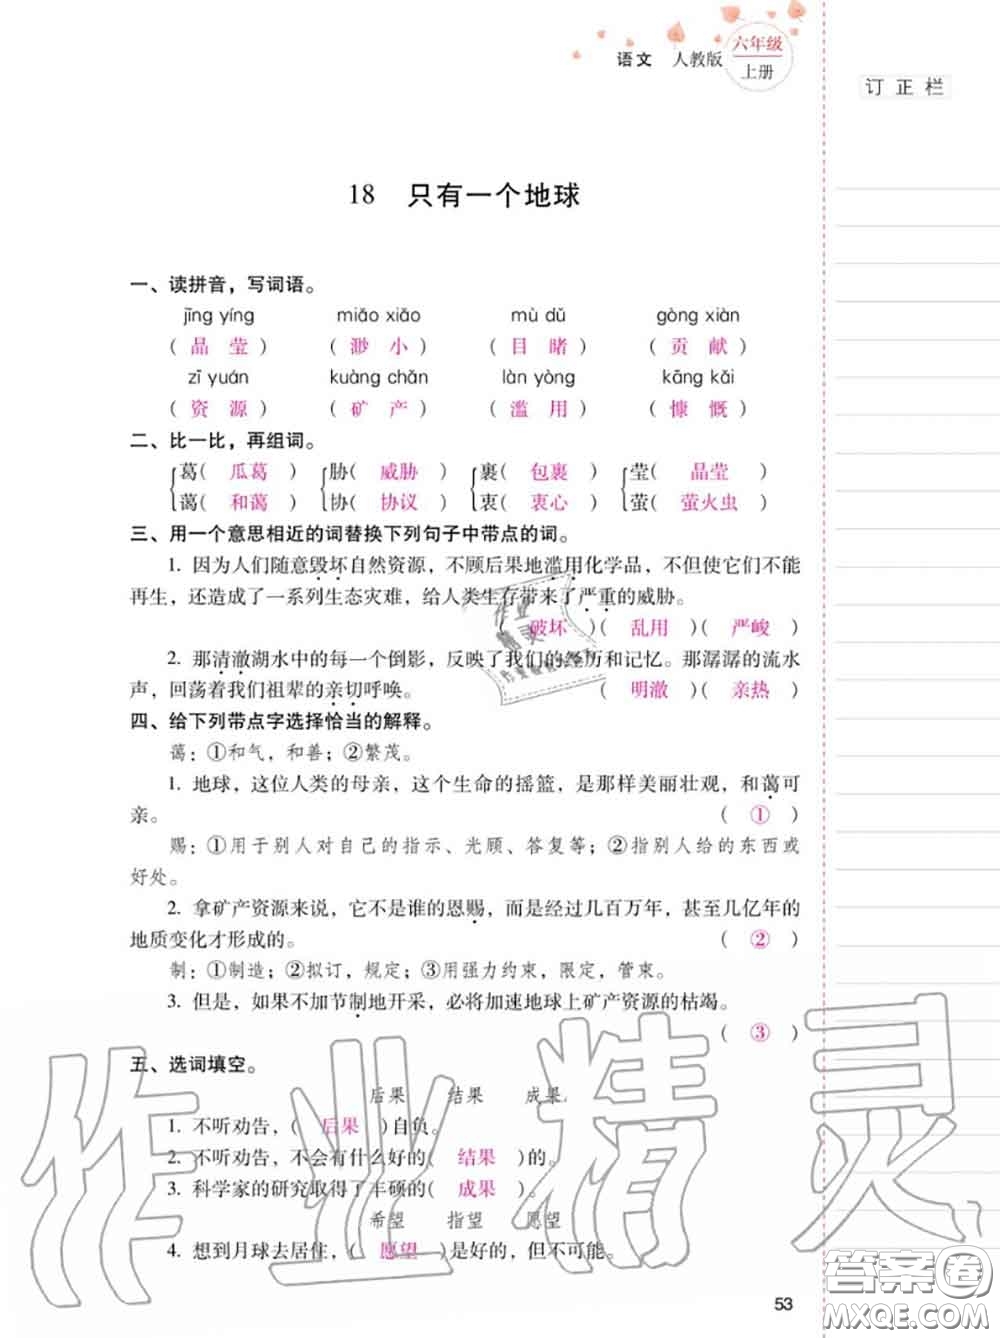 语文 人教版 六年级
上册
订正栏
18 只有一个地球
一、读拼音，写词语。
jīng yíng miǎo xiǎo mù dǔ gòng xiàn
（ 晶 莹 ） （ 渺 小 ） （ 目 睹 ） （ 贡 献 ）
zī yuán kuàng chǎn làn yòng kāng kǎi
（ 资 源 ） （ 矿 产 ） （ 滥 用 ） （ 慷 慨 ）
二、比一比，再组词。
葛（ 瓜葛 ） 胁（ 威胁 ） 裹（ 包裹 ） 莹（ 晶莹 ）
蔼（ 和蔼 ） 协（ 协议 ） 衷（ 衷心 ） 萤（ 萤火虫 ）
三、用一个意思相近的词替换下列句子中带点的词。
1. 因为人们随意毁坏自然资源，不顾后果地滥用化学品，不但使它们不能
再生，还造成了一系列生态灾难，给人类生存带来了严重的威胁。
（ 破坏 ）（ 乱用 ）（ 严峻 ）
2. 那清澈湖水中的每一个倒影，反映了我们的经历和记忆。那潺潺的流水
声，回荡着我们祖辈的亲切呼唤。 （ 明澈 ）（ 亲热 ）
四、给下列带点字选择恰当的解释。
蔼：①和气，和善；②繁茂。
1. 地球，这位人类的母亲，这个生命的摇篮，是那样美丽壮观，和蔼可
亲。 （ ① ）
赐：①用于别人对自己的指示、光顾、答复等；②指别人给的东西或
好处。
2. 拿矿产资源来说，它不是谁的恩赐，而是经过几百万年，甚至几亿年的
地质变化才形成的。 （ ② ）
制：①制造；②拟订，规定；③用强力约束，限定，管束。
3. 但是，如果不加节制地开采，必将加速地球上矿产资源的枯竭。
（ ③ ）
五、选词填空。
后果 结果 成果
1. 不听劝告，（ 后果 ）自负。
2. 不听劝告，不会有什么好的（ 结果 ）的。
3. 科学家的研究取得了丰硕的（ 成果 ）。
希望 指望 愿望
4. 想到月球去居住，（ 愿望 ）是好的，但不可能。
53
作业精灵
答案圈
MXQE.COM